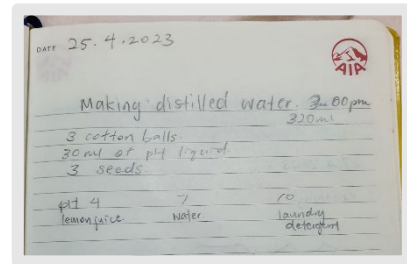 DATE 25.4.2023
AIA
Making distilled water. 60pm
320ml
3 cotton balls
30ml of pH liquid
3 seeds
pH 4 7 10
lemon juice water laundry
detergent